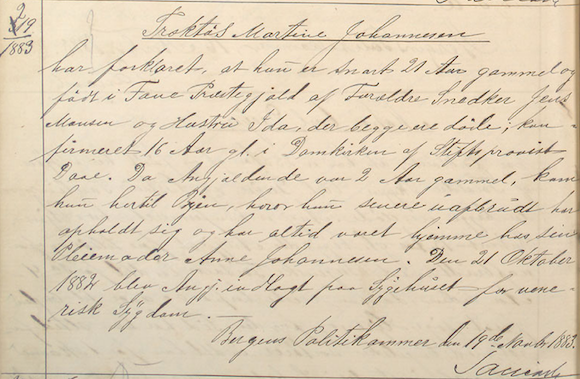 2/19
1883
Martine Johannesen
har forklaret, at hun er snart 21 Aar gammel og
født i Fane Præstegjæld af Forældre Snedker Jens
Monsen og Hustru Ida, der begge ere døde; kon-
firmeret 16 Aar gl. i Domkirken af Stiftsprovst
Daae. Da Angjældende var 2 Aar gammel, kom
hun hertil Byen, hvor hun senere uafbrudt har
opholdt sig og har altid været hjemme hos sin
Pleiemoder Anne Johannesen. Den 21 Oktober
1882 blev Angj. indlagt paa Sygehuset for vene-
risk Sygdom. —
Bergens Politikammer den 19de Novbr 1883.